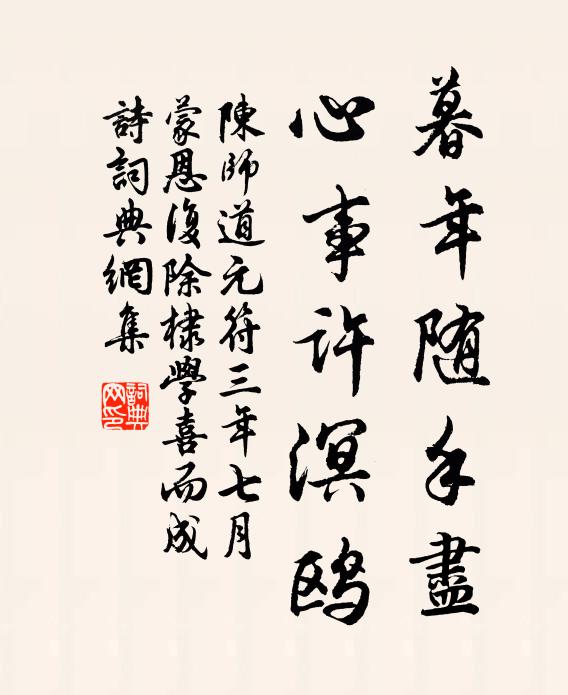 暮年随手盡
心事許溟鷗
陳師道元符三年七月
蒙恩復除棣學喜而成
詩詞典網集
詞典网印